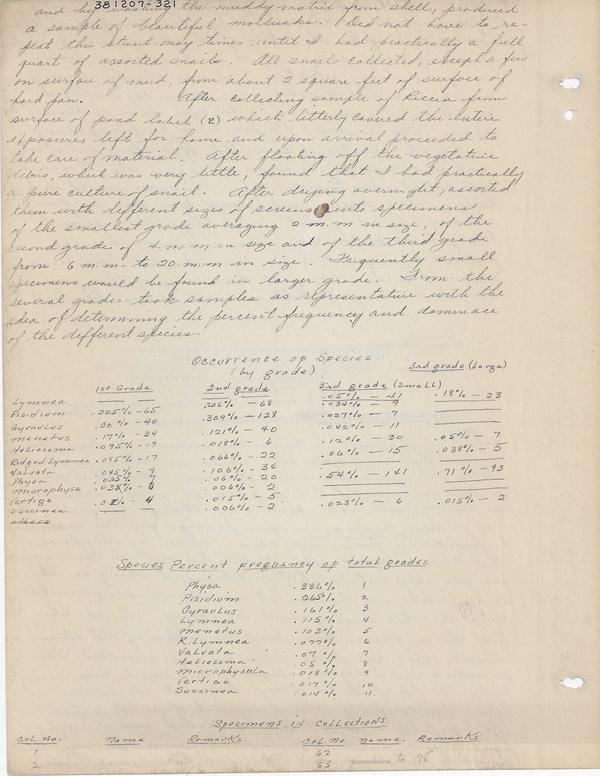 381207-321
and by washing the muddy matrix from shell, produced
a sample of beautiful mollusks. Did not have to re-
peat the stunt may times until I had practically a full
quart of assorted snails. All snails collected, except a few
on surface of mud, from about 2 square feet of surface of
hard pan. After collecting sample of Riccia from
surface of pond label (2) which litterly covered the entire
exposures left for home and upon arrival proceeded to
take care of material. After floating off the vegetative
debris, which was very little, found that I had practically
a pure culture of snail. After drying overnight, assorted
them with different sizes of screens into specimens
of the smallest grade averaging 2 m.m in size, of the
second grade of 4 m.m in size and of the third grade
from 6 m.m. to 20 m.m in size. Frequently small
specimens would be found in larger grade. From the
several grades took samples as representative with the
idea of determining the percent frequency and dominace
of the different species.
Occurrence of Species
(by grade)
1st Grade 2nd grade 3rd grade (small) 3rd grade (Large)
Lymnea .206% - 68 .05% - 41 .18% - 23
Pisidium .325% - 65 .309% - 128 .034% - 9
Gyraulus .20% - 40 .121% - 40 .027% - 7
menetus .17% - 34 .018% - 6 .042% - 11
Heliosoma .095% - 19 .066% - 22 .12% - 30 .05% - 7
Ridged Lymnea .085% - 17 .106% - 34 .06% - 15 .038% - 5
Valvata .045% - 9 .06% - 20
Physa .035% 7 .006% - 2 .54% - 141 .71% - 93
microphysa
Vertigo 4 .015% - 5
Succinea .006% - 2 .023% - 6 .015% - 2
others
Species Percent frequency of total grades
Physa .336% 1
Pisidium .265% 2
Gyraulus .161% 3
Lymnea .115% 4
menetus .103% 5
R. Lymnea .077% 6
Valvata .07% 7
Heliosoma .05% 8
microphysula .018% 9
Vertigo .017% 10
Succinea .014% 11
Specimens in Collections
Col. No. Name Remarks Col. No Name. Remarks
1 62
2 63 numbers to 75